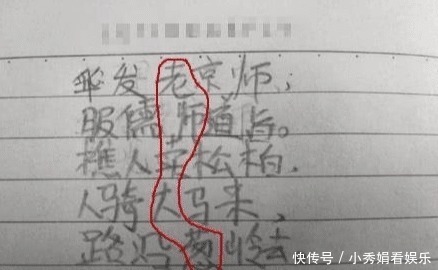 发老京师,
服儒师道旨。
樵人卖松柏.
人骑大马来,
路葱岭去
快传号/小秀娟看娱乐